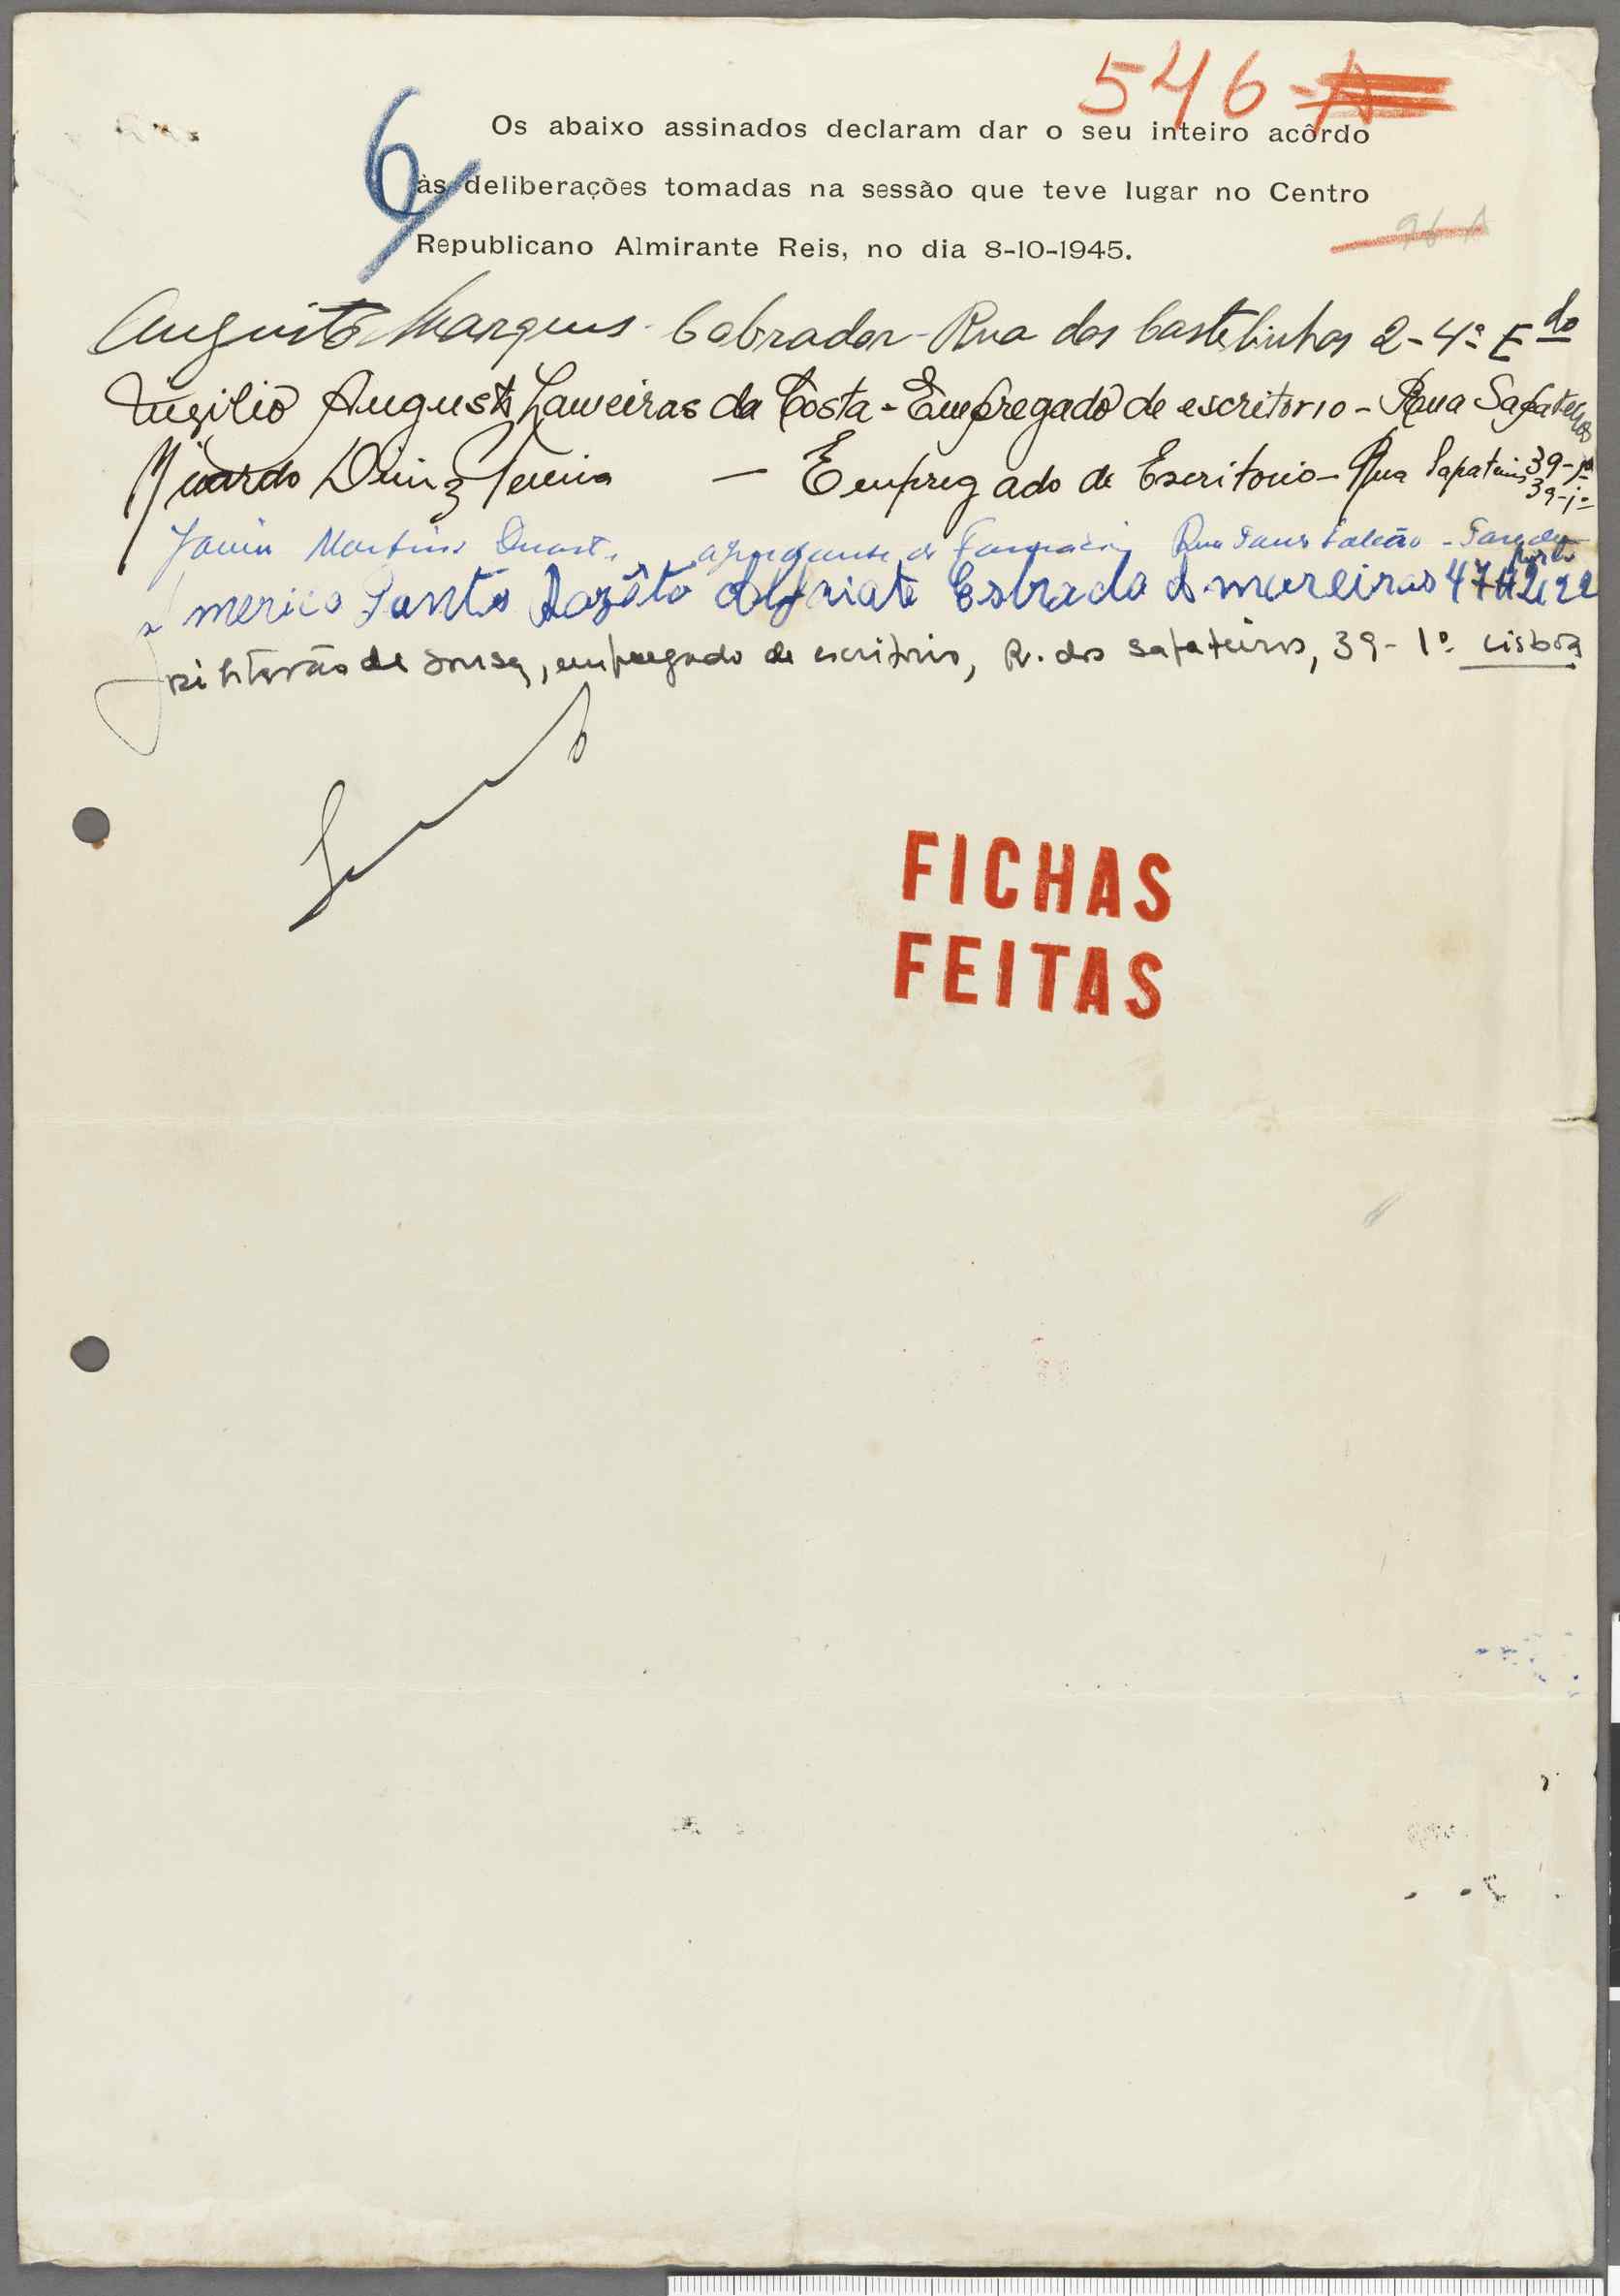 546-A
Os abaixo assinados declaram dar o seu inteiro acôrdo
6
às deliberações tomadas na sessão que teve lugar no Centro
96 A
Republicano Almirante Reis, no dia 8-10-1945.
Augusto Marques - Cobrador - Rua dos Castelinhos 2-4º Edo
Virgilio Augusto Laureiras da Costa - Empregado de escritorio - Rua Sapateiros
39-1º
Ricardo Diniz Pereira — Empregado de Escritorio - Rua Sapateiros 39-1º
Martins Duarte Rua Falcão
Americo Santo Alfaiate Estrada
de Sousa, empregado de escritório, R. dos Sapateiros, 39-1º Lisboa
FICHAS
FEITAS